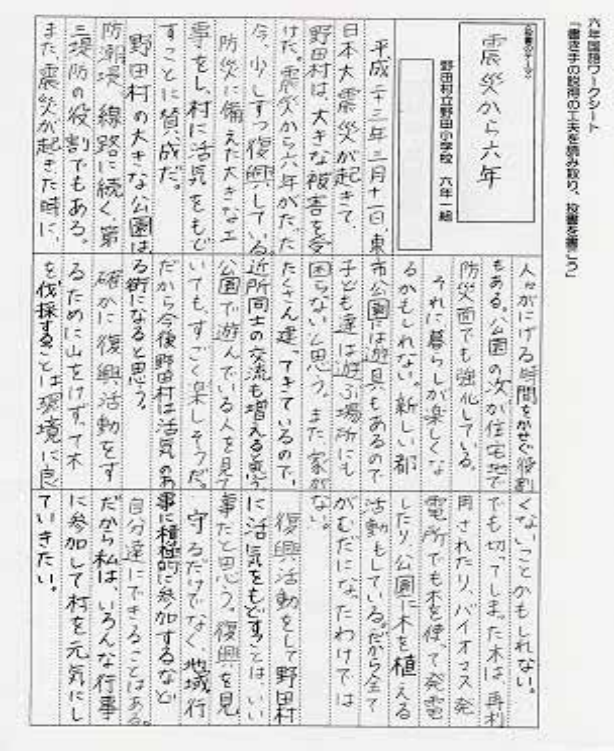 六年国語ワークシート
「書き手の説得の工夫を読み取り、投書を書こう」
投書のテーマ
震災から六年
野田村立野田小学校 六年一組
平成二十三年三月十一日、東
日本大震災が起きて、
野田村は、大きな被害を受
けた。震災から六年がたった
今、少しずつ復興している。
防災に備えた大きな工
事をし、村に活気をもど
すことに賛成だ。
野田村の大きな公園は
防潮堤、線路に続く、第
三堤防の役割でもある。
また、震災が起きた時に、
人々がにげる時間をかせぐ役割
もある。公園の次が住宅地で
防災面でも強化している。
それに暮らしが楽しくな
るかもしれない。新しい都
市公園には遊具もあるので
子ども達は遊ぶ場所にも
困らないと思う。また、家が
たくさん建ってきているので、
近所同士の交流も増えると思う。
公園で遊んでいる人を見て
いても、すごく楽しそうだ。
だから今後野田村は活気のあ
る街になると思う。
確かに復興活動をす
るために山をけずって木
を伐採することは環境に良
くないことかもしれない。
でも切ってしまった木は、再利
用されたり、バイオマス発
電所でも木を使って発電
したり、公園に木を植える
活動もしている。だから全て
がむだになったわけでは
ない。
復興活動をして野田村
に活気をもどすことは、いい
事だと思う。復興を見
守るだけでなく、地域行
事に積極的に参加するなど
自分達にできることはある。
だから私は、いろんな行事
に参加して村を元気にし
ていきたい。